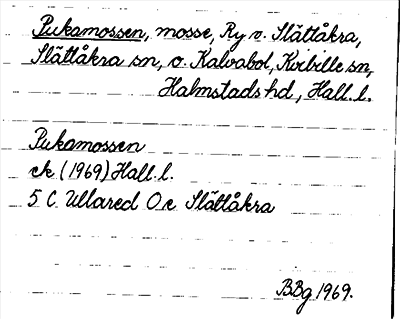 Pukamossen, mosse, Ry v. Slättåkra,
Slättåkra sn, o. Kalvabol, Kvibille sn,
Halmstads hd, Hall. l.
Pukamossen
ek (1969) Hall. l.
5 C Ullared O e Slättåkra
BBg 1969.